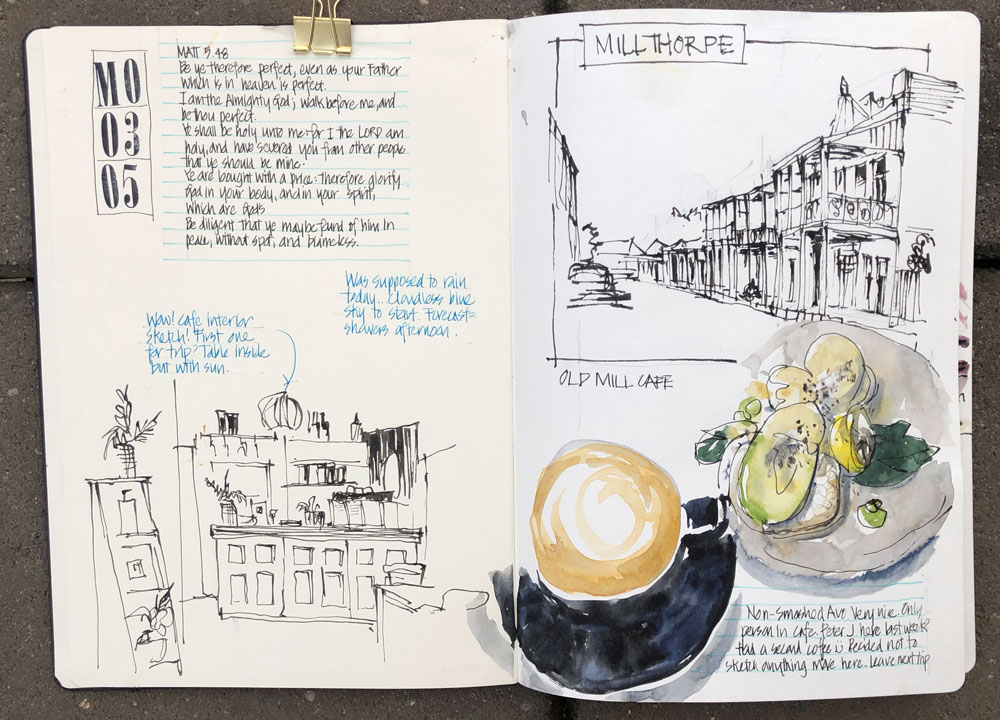 MO
03
05
MATT 5.48
Be ye therefore perfect, even as your Father
which is in heaven is perfect.
I am the Almighty God; walk before me, and
be thou perfect.
Ye shall be holy unto me: for I the LORD am
holy, and have severed you from other people
that ye should be mine.
Ye are bought with a price: therefore glorify
God in your body, and in your spirit,
which are God's
Be diligent that ye may be found of him in
peace, without spot, and blameless.
Was supposed to rain
today.. Cloudless blue
sky to start. Forecast=
showers afternoon.
Wow! Cafe interior
sketch! First one
for trip? Table inside
but with sun.
MILLTHORPE
OLD MILL CAFE
Non-Smashed Avo. Very nice. Only
person in cafe. Peter J here last week?
Had a second coffee Decided not to
sketch anything more here. Leave next trip